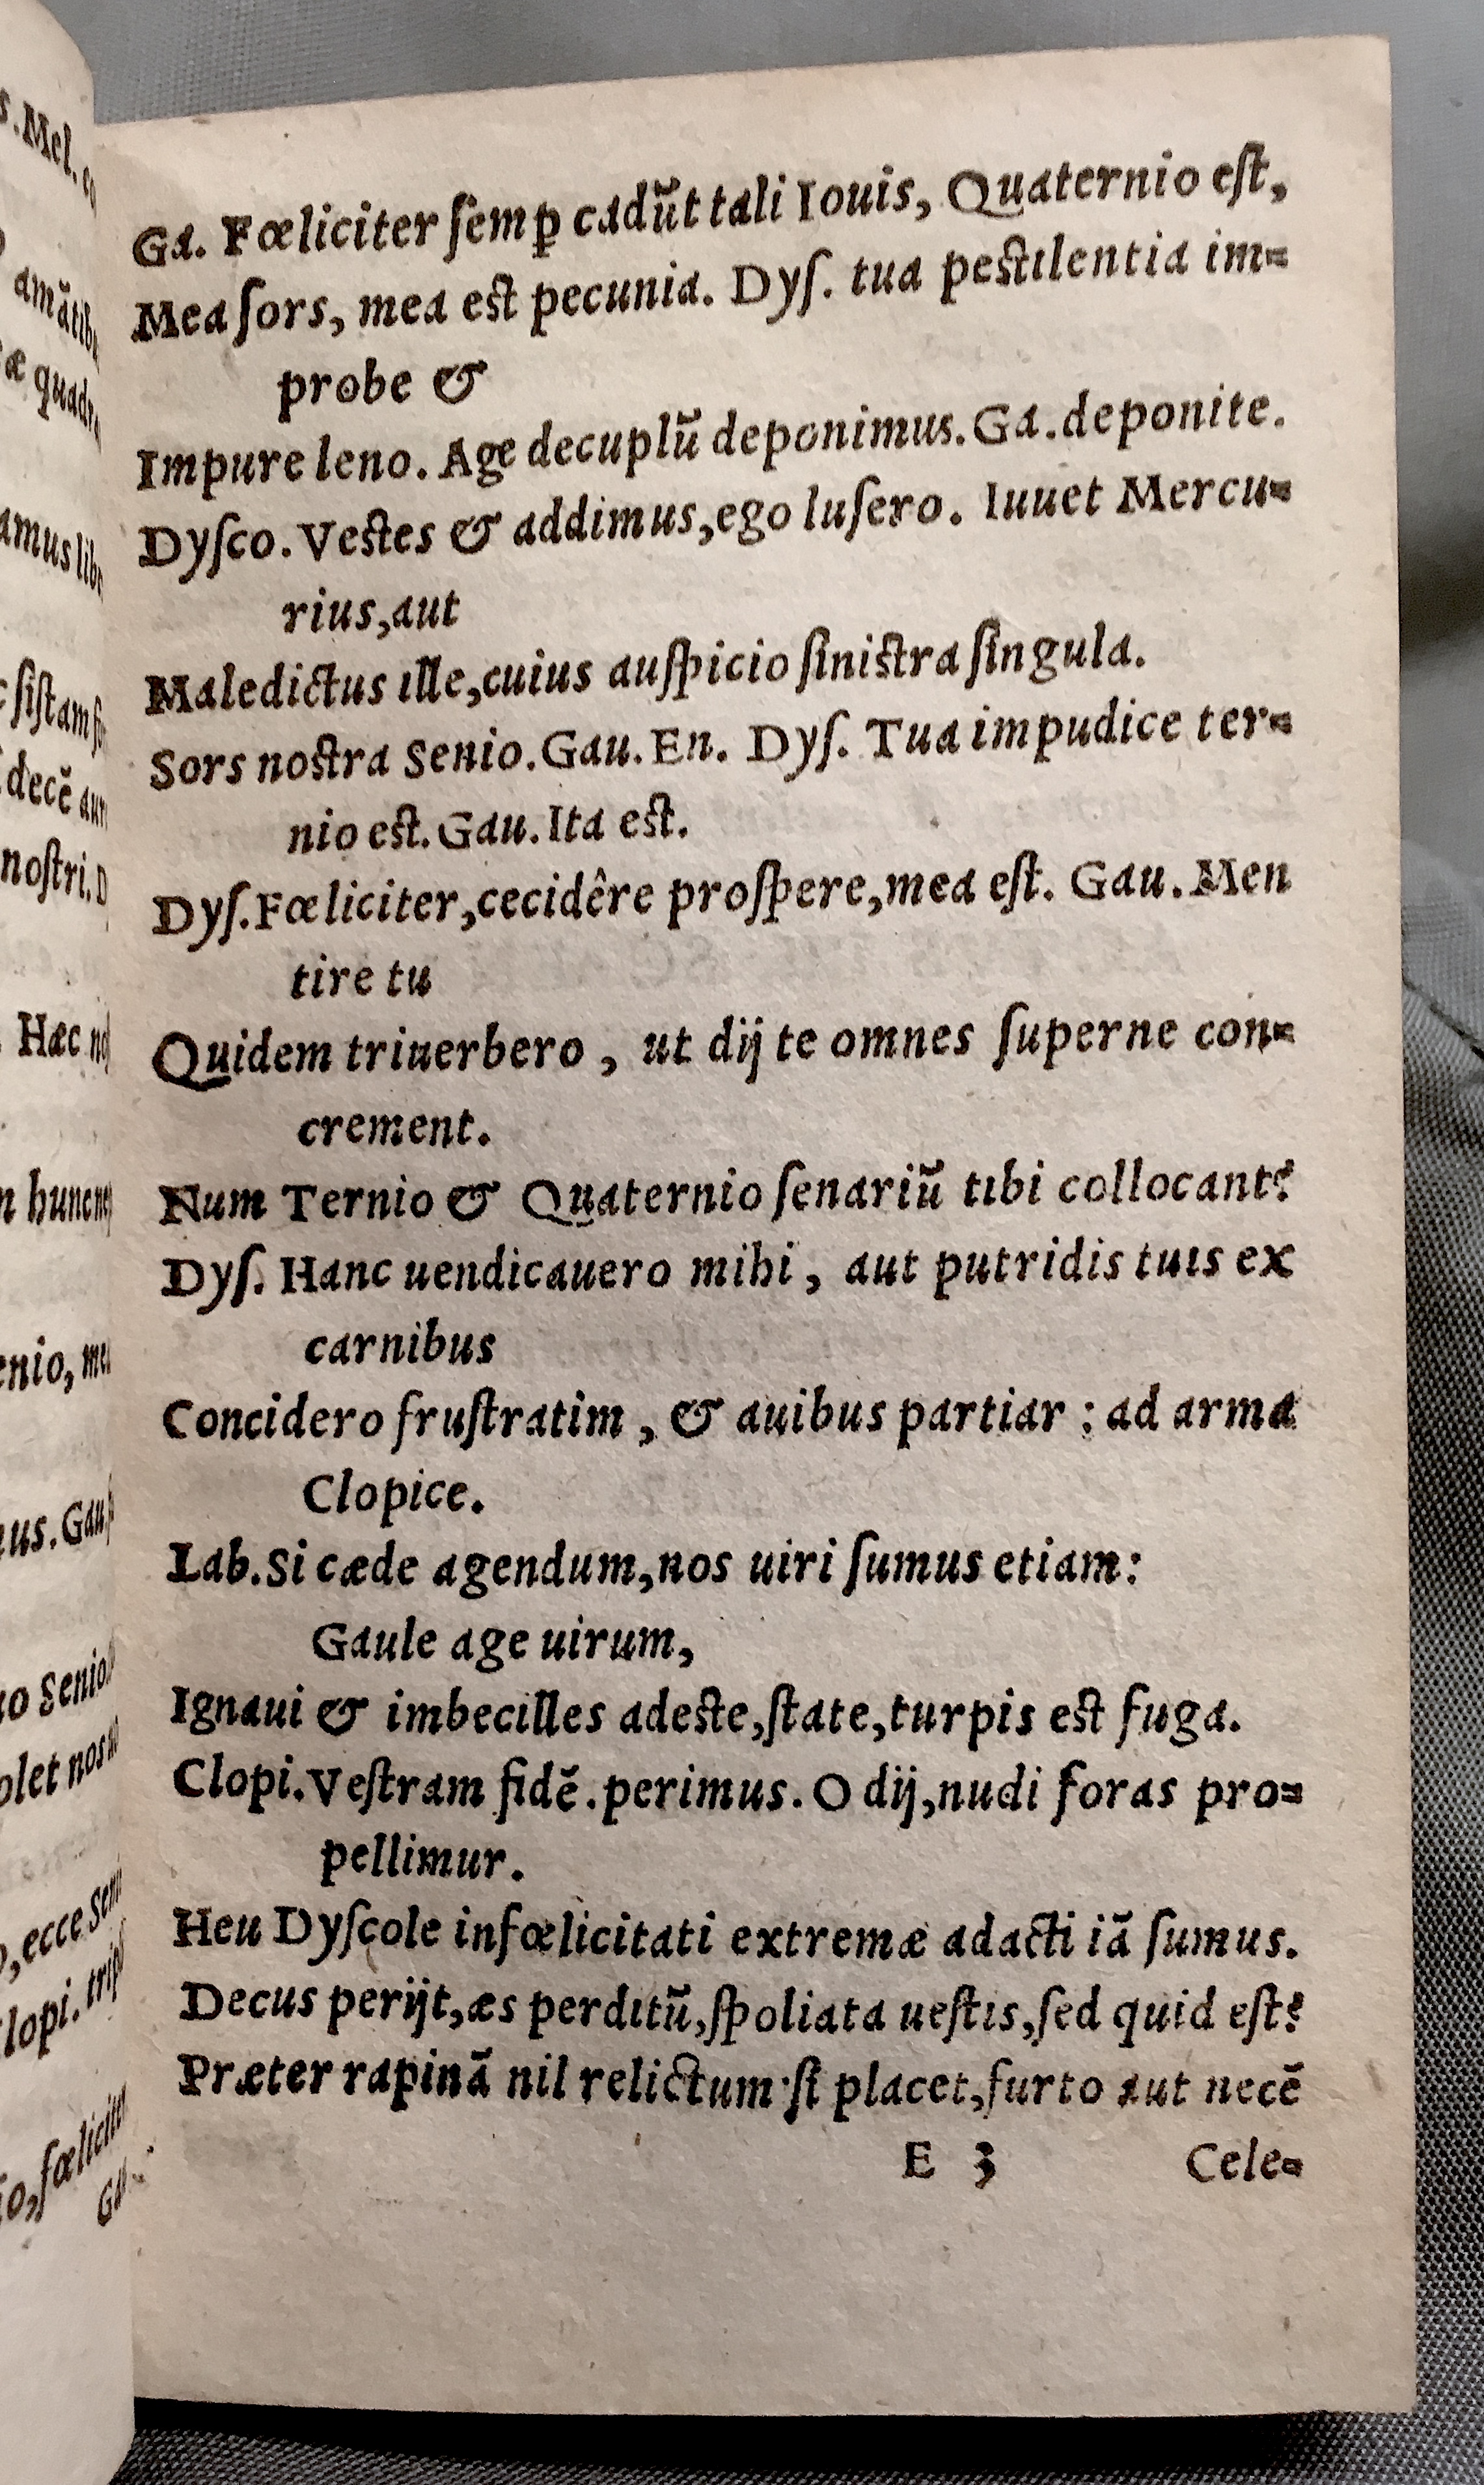 Ga. Fœliciter ſemꝑ cadũt tali Iouis, Quaternio eſt,
Mea ſors, mea eſt pecunia. Dyſ. tua peſtilentia im-
probe &
Impure leno. Age decuplũ deponimus. Ga. deponite.
Dyſco. Veſtes & addimus, ego luſero. Iuuet Mercu-
rius, aut
Maledictus ille, cuius auſpicio ſiniſtra ſingula.
Sors noſtra Senio. Gau. En. Dyſ. Tua impudice ter-
nio eſt. Gau. Ita eſt.
Dyſ. Fœliciter, cecidêre proſpere, mea eſt. Gau. Men
tire tu
Quidem triuerbero, ut dij te omnes ſuperne con-
crement.
Num Ternio & Quaternio ſenariũ tibi collocant?
Dyſ. Hanc uendicauero mihi, aut putridis tuis ex
carnibus
Concidero fruſtratim, & auibus partiar: ad arma
Clopice.
Lab. Si cæde agendum, nos uiri ſumus etiam:
Gaule age uirum,
Ignaui & imbecilles adeſte, ſtate, turpis eſt fuga.
Clopi. Veſtram fidẽ. perimus. O dij, nudi foras pro-
pellimur.
Heu Dyſcole infœlicitati extremæ adacti iã ſumus.
Decus perijt, æs perditũ, ſpoliata ueſtis, ſed quid eſt?
Præter rapinã nil relictum·ſi placet, furto aut necẽ
E 3 Cele-